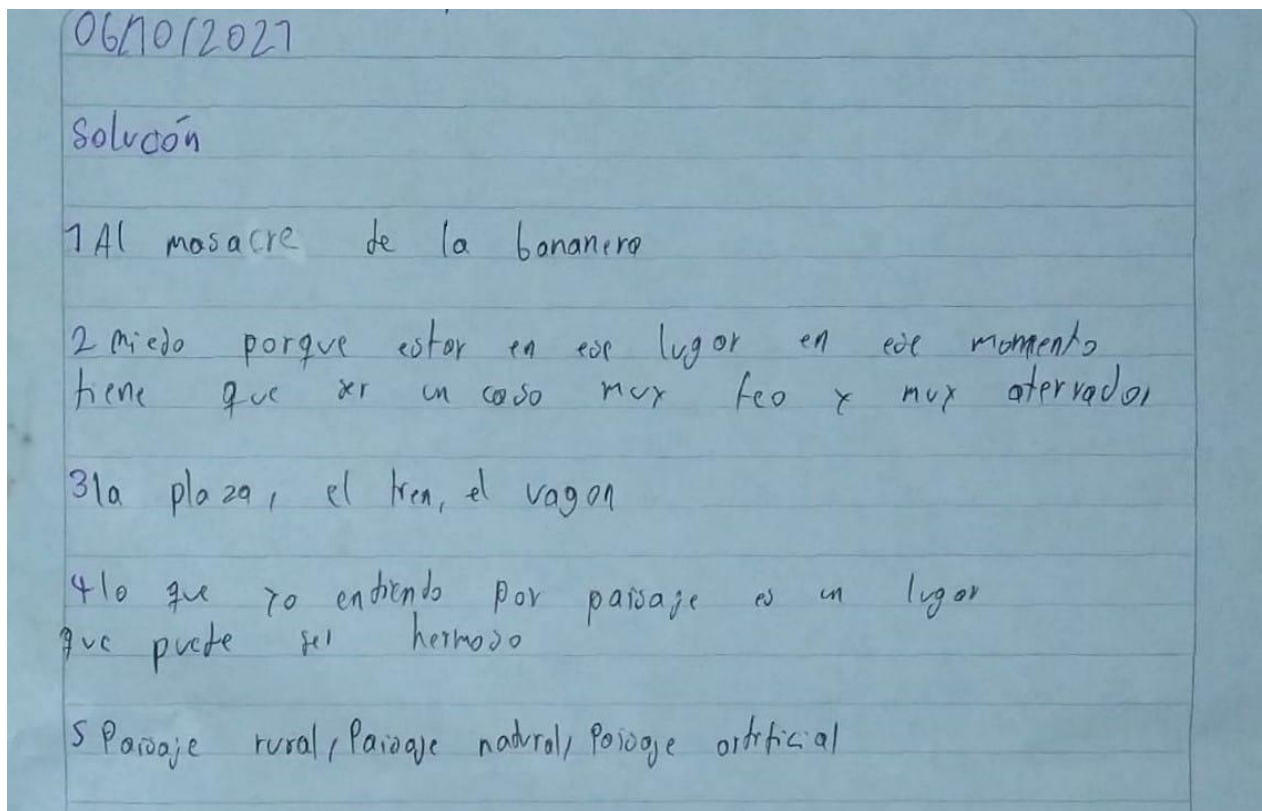 06/10/2021
Solución
1 Al masacre de la bananera
2 miedo porque estar en ese lugar en ese momento
tiene que ser un caso muy feo y muy aterrador
3 la plaza, el tren, el vagon
4 lo que yo entiendo por paisaje es un lugar
que puede ser hermoso
5 Paisaje rural, Paisaje natural, Paisaje artificial